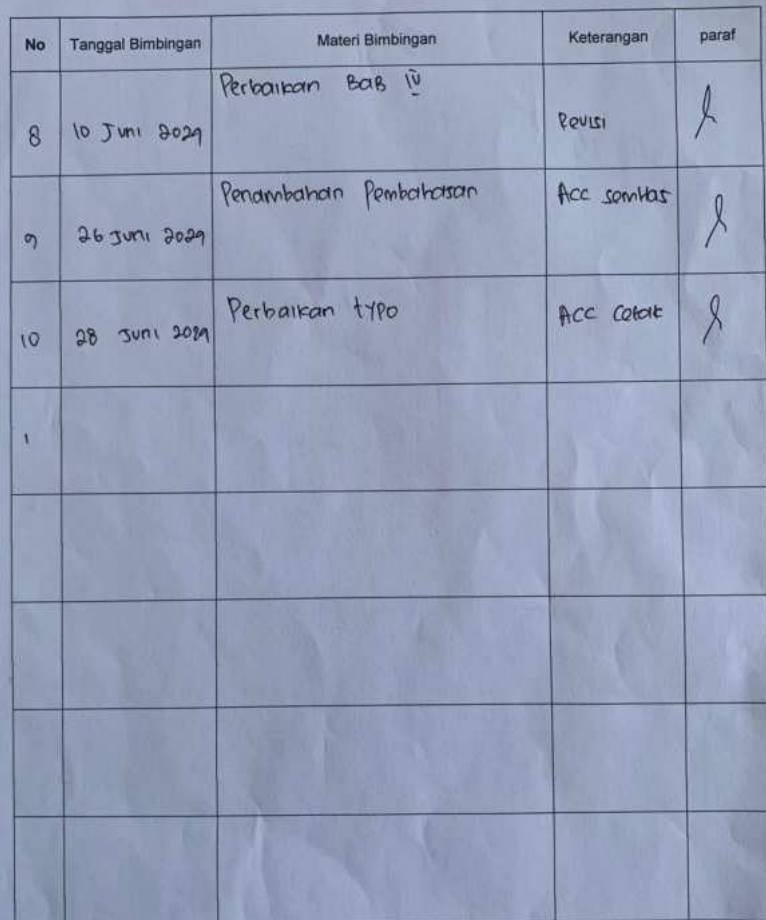 No Tanggal Bimbingan Materi Bimbingan Keterangan paraf
8 10 Juni 2024 Perbaikan BAB IV Revisi
9 26 Juni 2024 Penambahan Pembahasan Acc semhas
10 28 Juni 2024 Perbaikan typo Acc Cetak
1